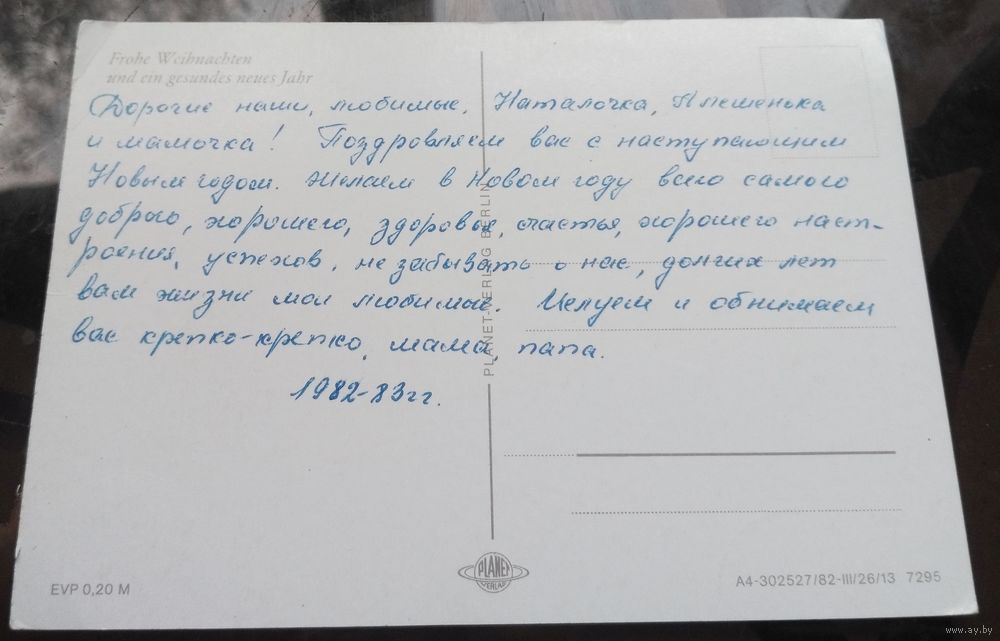 Frohe Weihnachten
und ein gesundes neues Jahr
Дорогие наши, любимые, Наталочка,
и мамочка! Поздравляем вас с наступающим
Новым годом. Желаем в Новом году всего самого
доброго, хорошего, здоровья, счастья, хорошего наст-
роения, успехов, не забывать о нас, долгих лет
вам жизни мои любимые. Целуем и обнимаем
вас крепко-крепко, мама, папа.
1982-83гг.
PLANET-VERLAG BERLIN
EVP 0,20 M
PLANET
VERLAG
A4-302527/82-III/26/13 7295
www.ay.by